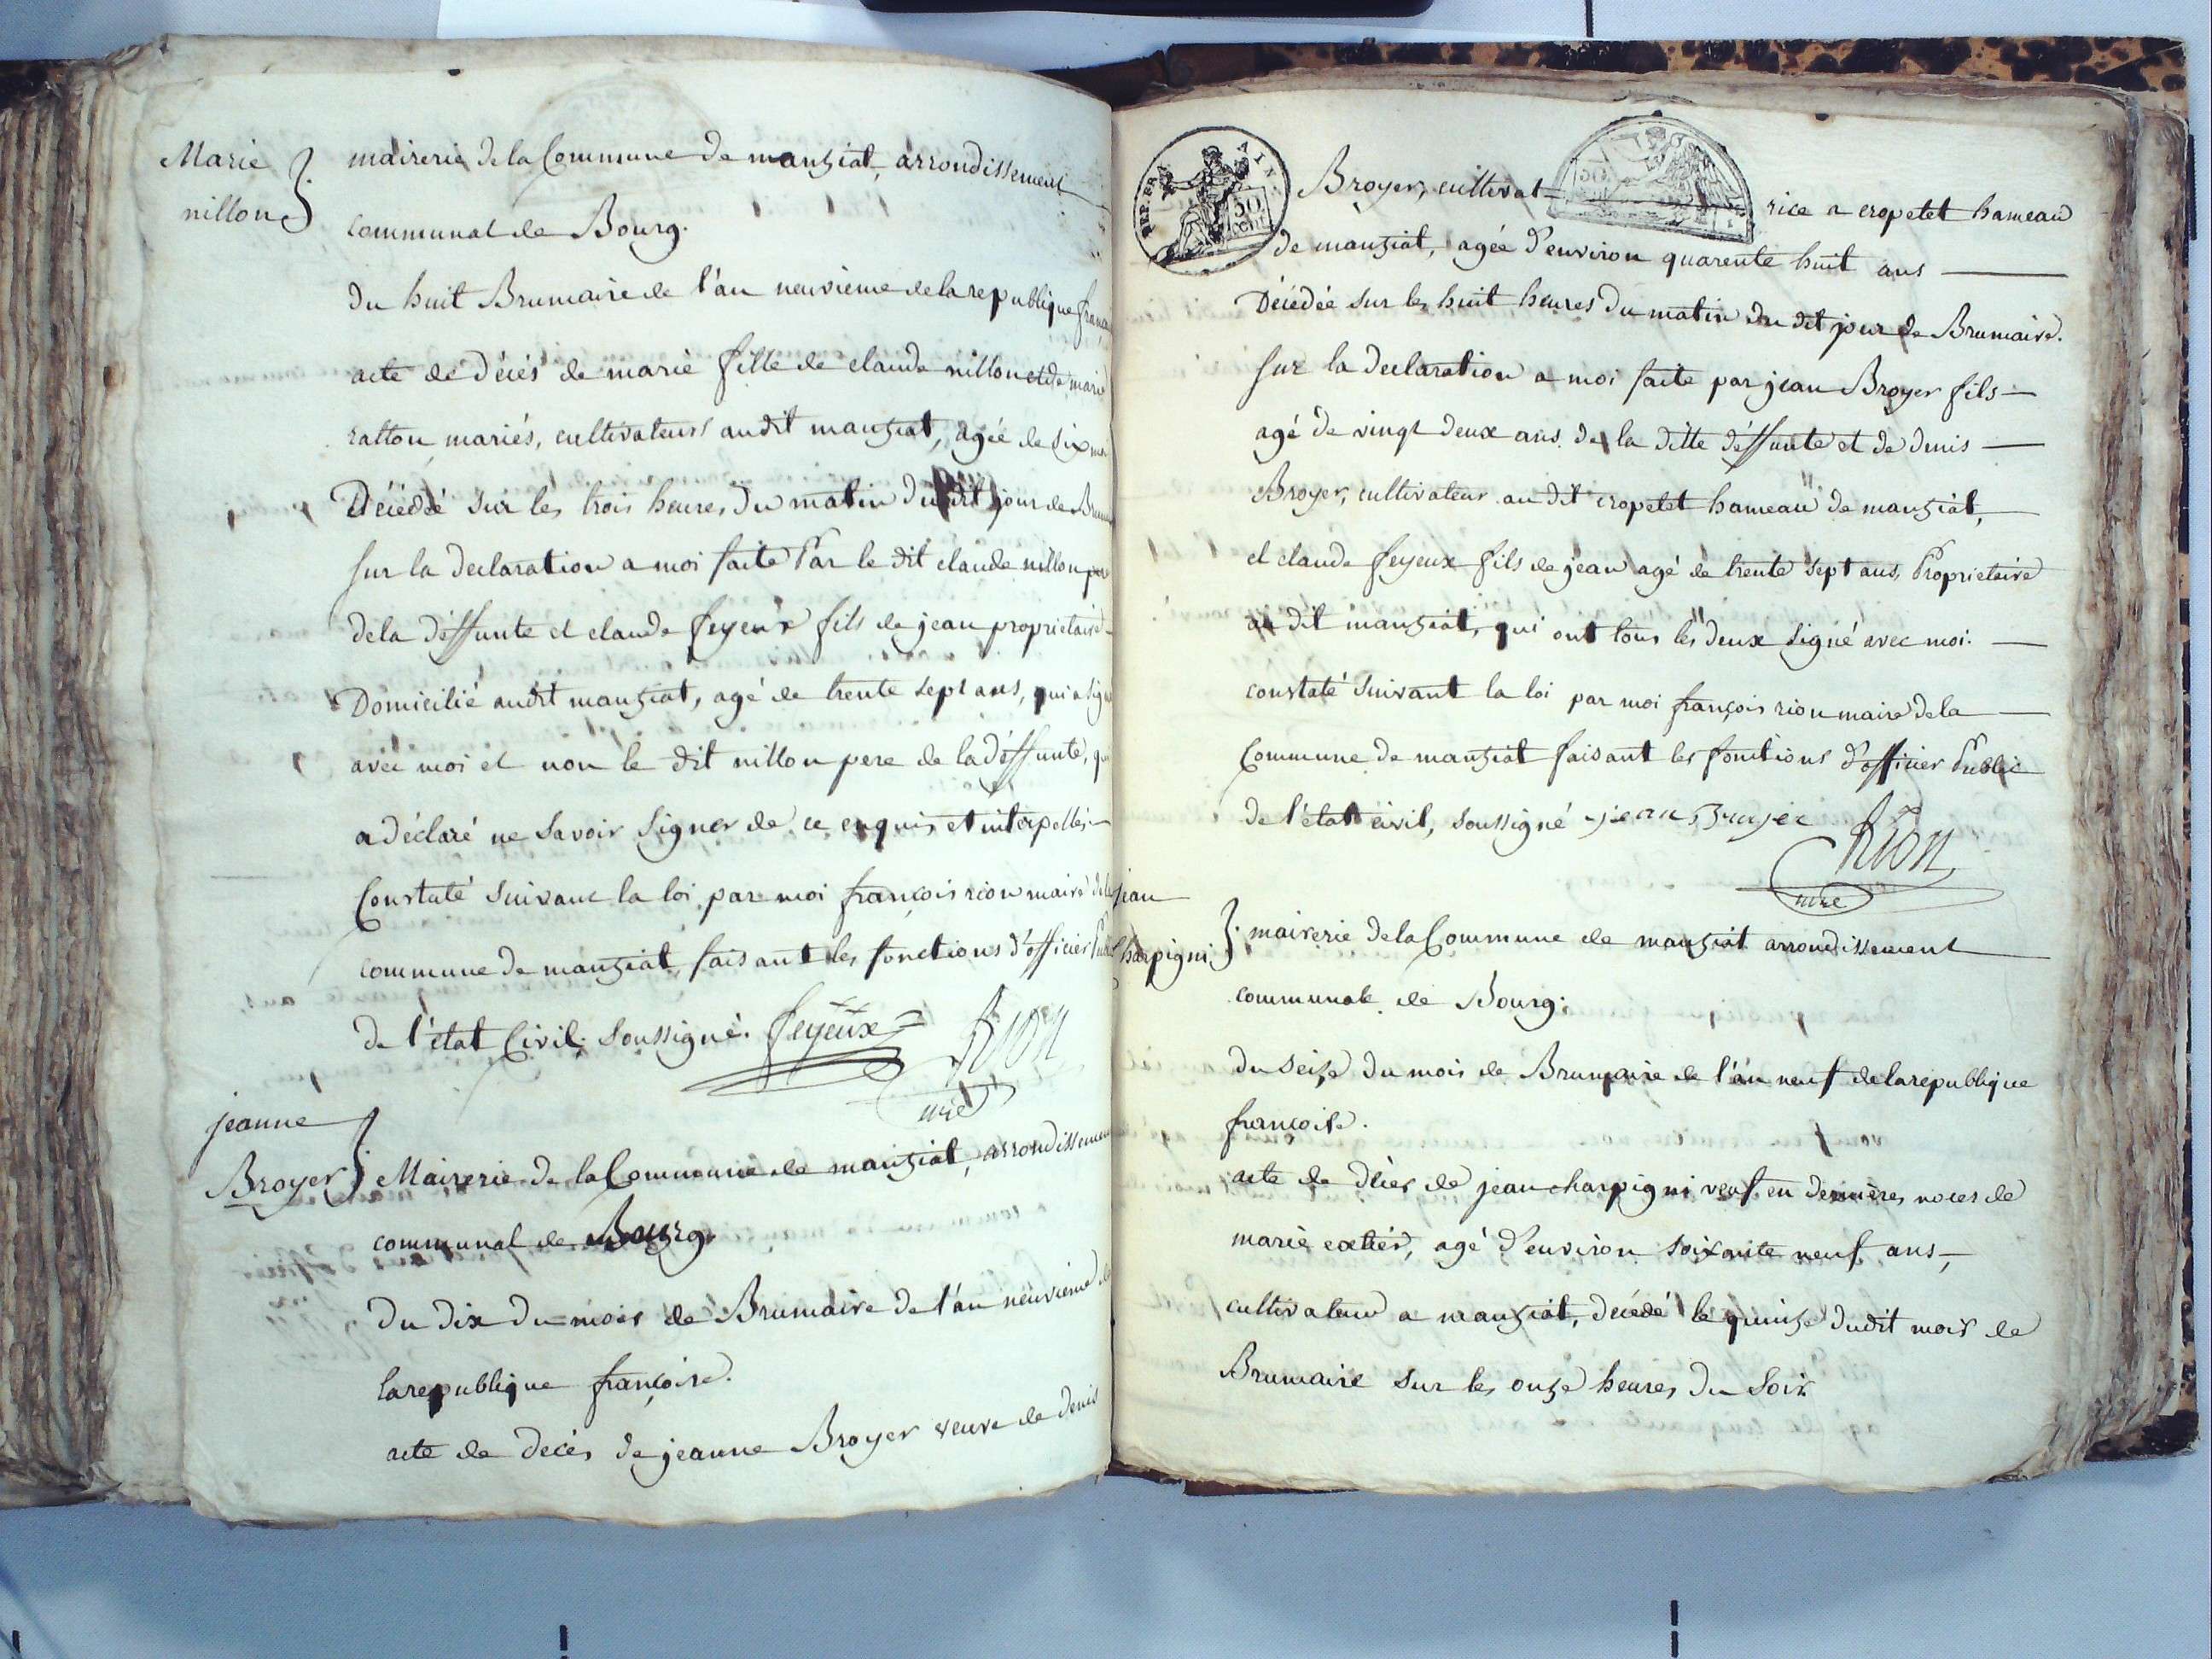 Marie
nillon
mairerie de la Commune de manziat, arrondissement
communal de Bourg.
du huit Brumaire de l'an neuvieme de la republique
acte de décés de marie fille de claude nillon et de marie
ratton mariés, cultivateurs audit manziat, agée de six
Décédé sur les trois heures du matin dudit jour de
sur la declaration a moi faite Par le dit claude nillon
de la déffunte et claude feyeux fils de jean proprietaire
Domicilié audit manziat, agé de trente sept ans, qui a
avec moi et non le dit nillon pere de la déffunte,
a déclaré ne savoir signer de ce enquis et interpellé
Constaté suivant la loi par moi françois rion maire
commune de manziat faisant les fonctions d'officier
de l'état Civil. soussigné. feyeux Rion
mre
jeanne
Broyer
Mairerie de la Commune de manziat, arrondissement
communal de Bourg
Du dix du mois de Brumaire de l'an neuvieme
la republique françoise.
acte de decés de jeanne Broyer veuve de denis
REP. FRA. AIN.
50
CENT
50
Broyer, cultivat rice a cropetet hameau
de manziat, agée d'environ quarente huit ans
Décédée sur les huit heures du matin du dit jour de Brumaire.
Sur la declaration a moi faite par jean Broyer fils
agé de vingt deux ans de la ditte déffunte et de denis
Broyer, cultivateur au dit cropetet hameau de manziat,
et claude feyeux fils de jean agé de trente sept ans, Proprietaire
au dit manziat, qui ont tous les deux signé avec moi.
constaté suivant la loi par moi françois rion maire de la
Commune de manziat faisant les fonctions d'officier Public
de l'état civil, soussigné jean Broyer
Rion
mre
jean
charpigni
mairerie de la Commune de manziat arrondissement
communale de Bourg.
du seize du mois de Brumaire de l'an neuf de la republique
françoise.
acte de décés de jean charpigni veuf en dernières noces de
marie, agé d'environ soixante neuf ans,
cultivateur a manziat, decédé le quinze dudit mois de
Brumaire sur les onze heures du soir